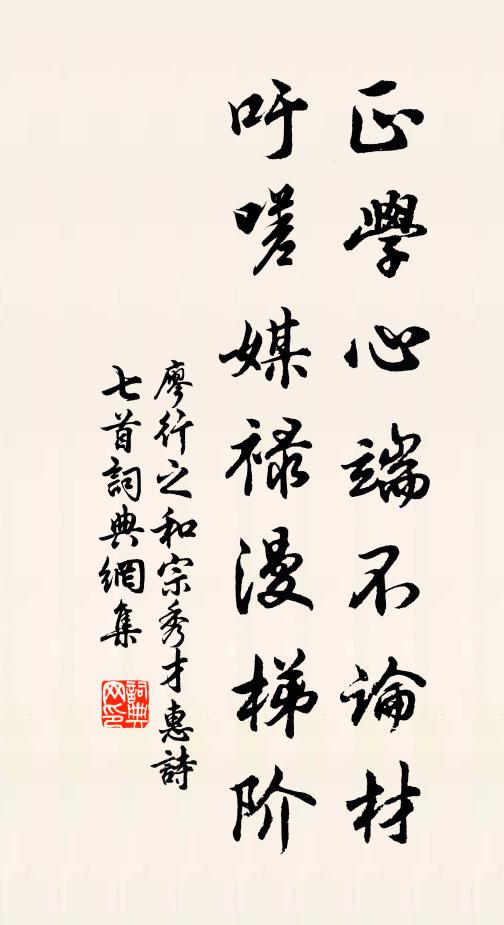 正學心端不論材
吁嗟媒祿漫梯阶
廖行之和宗秀才惠詩
七首詞典網集
詞典网印